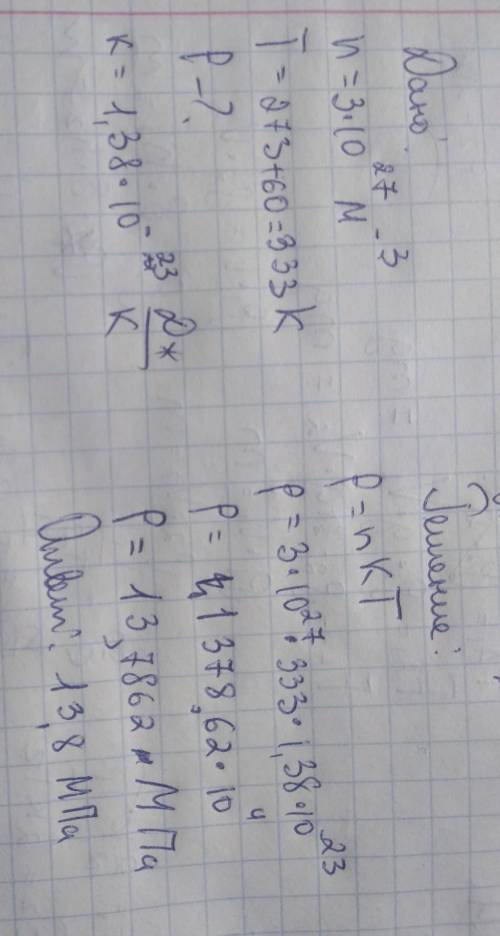 Дано:
n = 3·10²⁷ м⁻³
T = 273+60=333 K
p – ?
к = 1,38·10⁻²³ Дж/К
Решение:
p = nкT
p = 3·10²⁷·333·1,38·10²³
p = 1378,62·10⁴
p = 13,7862 МПа
Ответ: 13,8 МПа